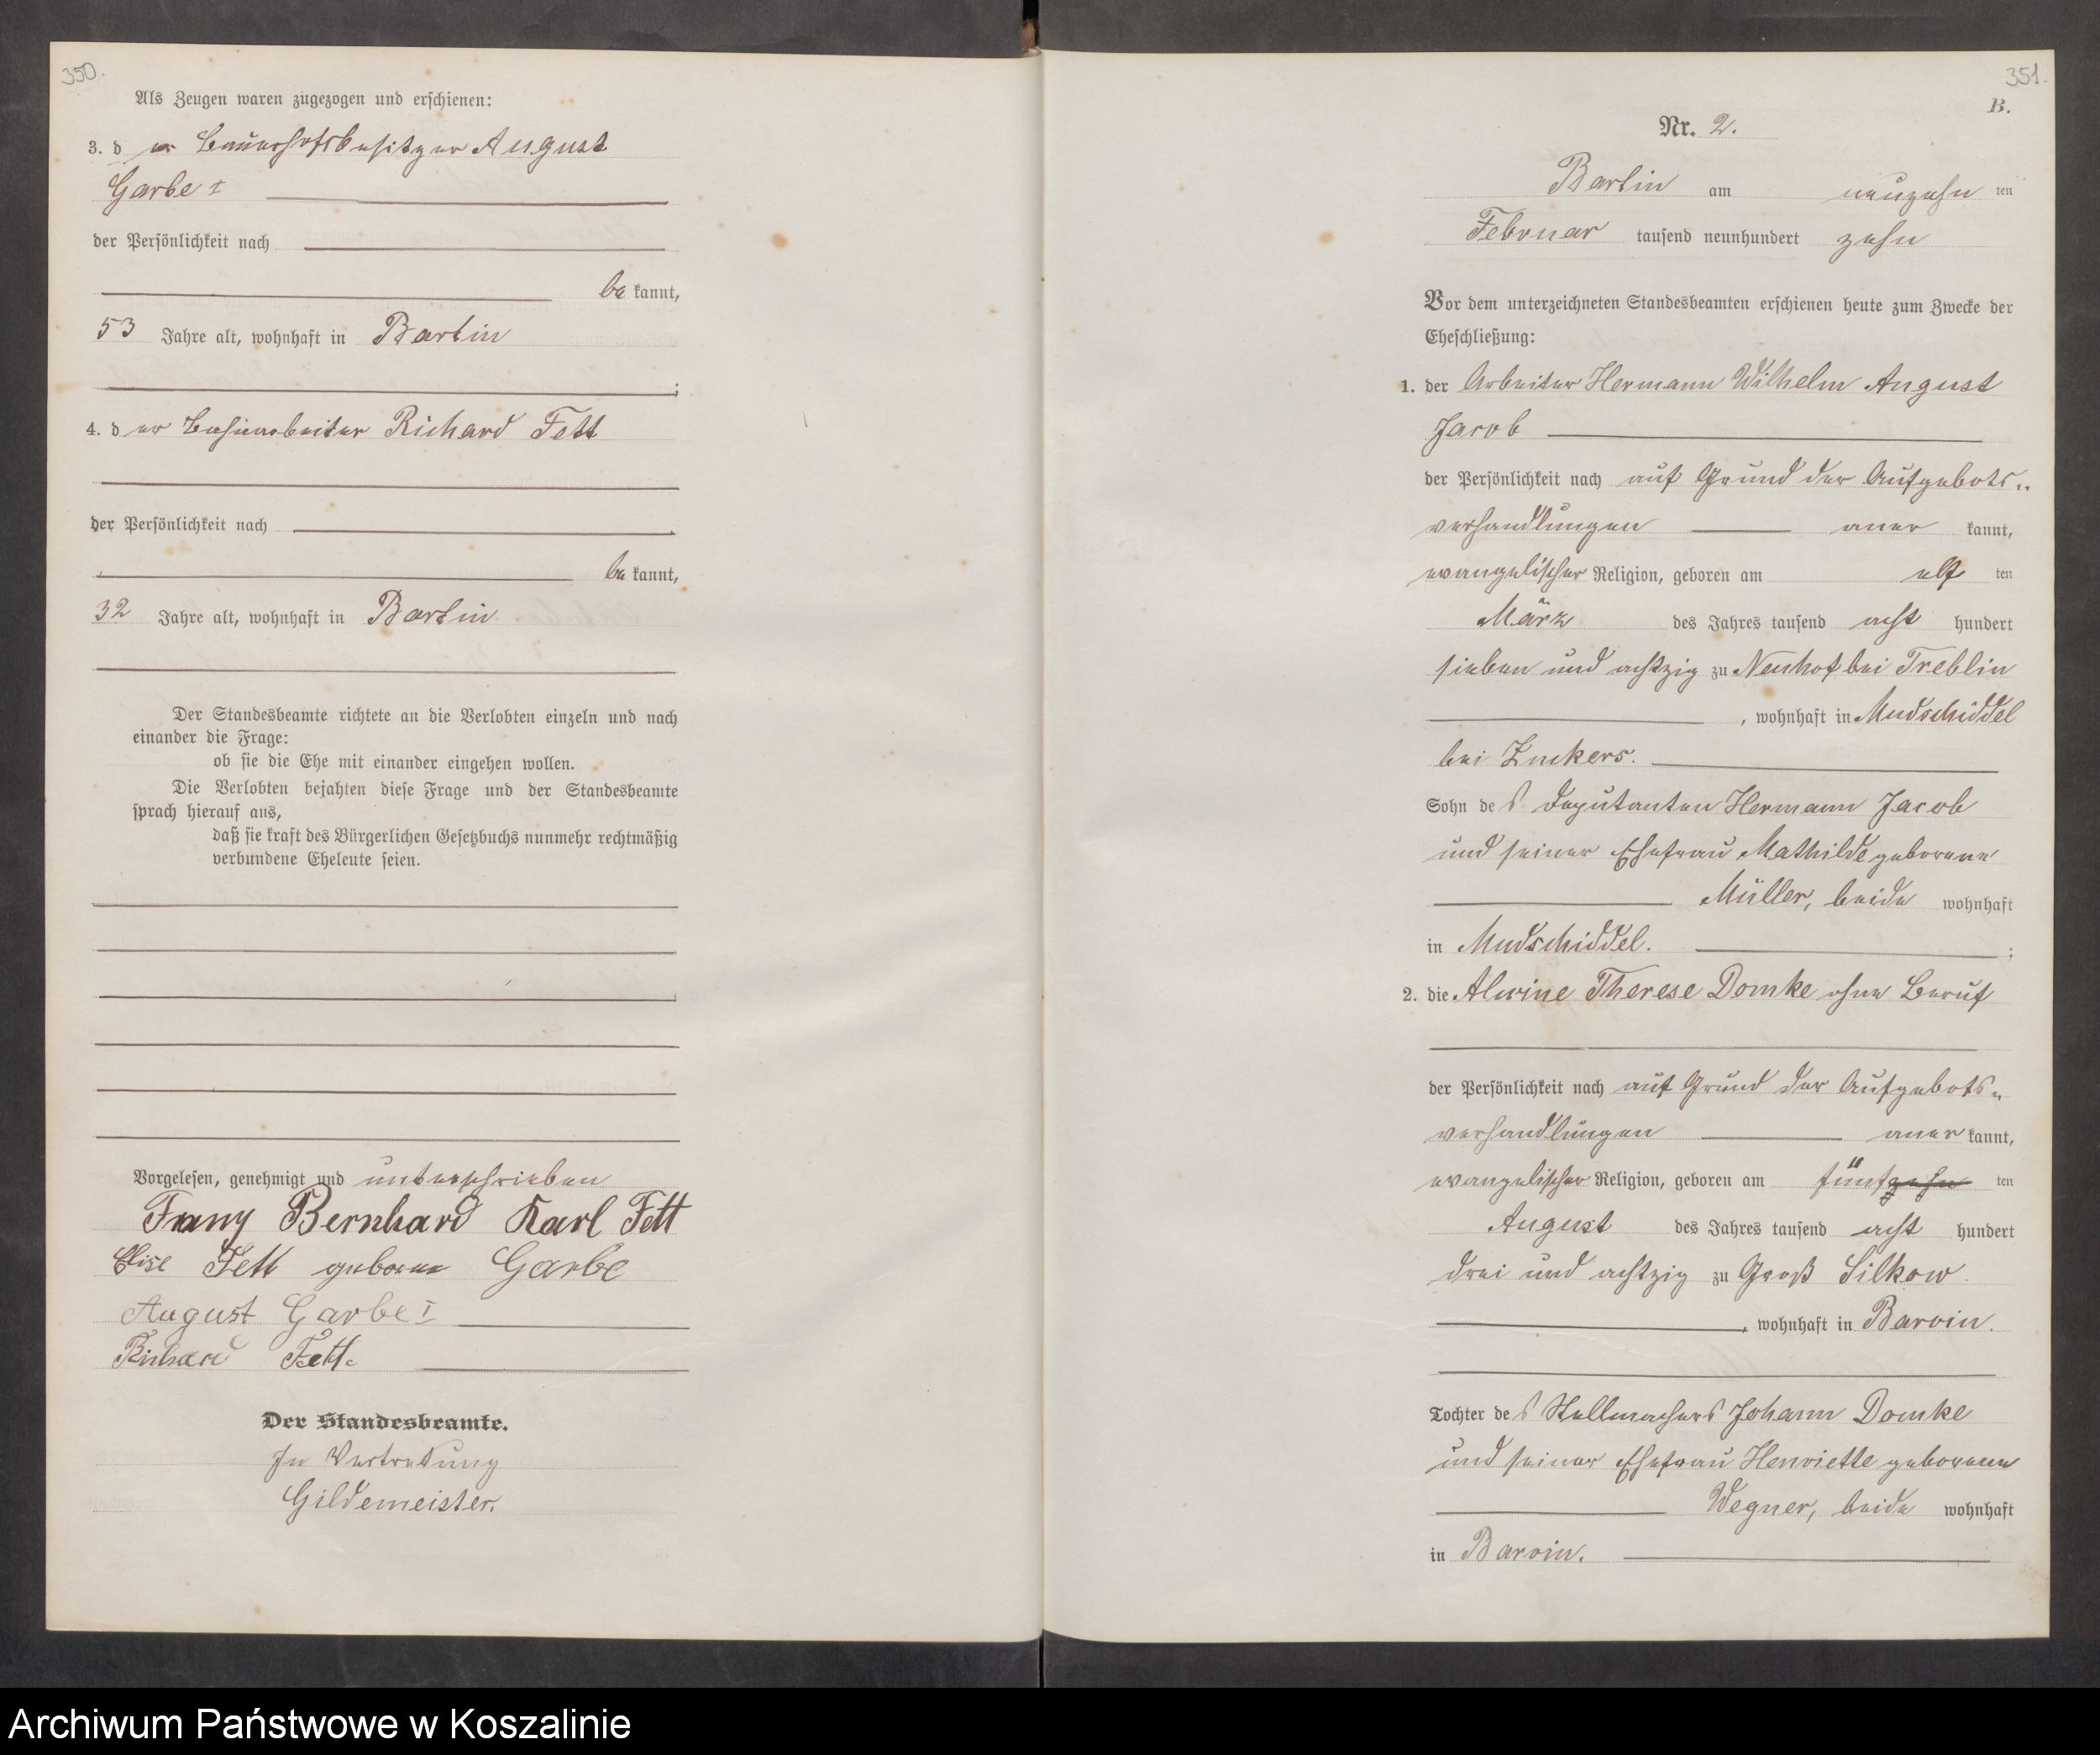 350.
Als Zeugen waren zugezogen und erschienen:
3. der Bauerhofsbesitzer August
Garbe I
der Persönlichkeit nach
bekannt,
53 Jahre alt, wohnhaft in Bartin
;
4. der Bahnarbeiter Richard Fett
der Persönlichkeit nach
bekannt,
32 Jahre alt, wohnhaft in Bartin
Der Standesbeamte richtete an die Verlobten einzeln und nach
einander die Frage:
ob sie die Ehe mit einander eingehen wollen.
Die Verlobten bejahten diese Frage und der Standesbeamte
sprach hierauf aus,
daß sie kraft des Bürgerlichen Gesetzbuchs nunmehr rechtmäßig
verbundene Eheleute seien.
Vorgelesen, genehmigt und unterschrieben
Franz Bernhard Karl Fett
Elise Fett geborene Garbe
August Garbe I
Richard Fett.
Der Standesbeamte.
In Vertretung
Gildemeister.
351.
B.
Nr. 2.
Bartin am neunzehn ten
Februar tausend neunhundert zehn
Vor dem unterzeichneten Standesbeamten erschienen heute zum Zwecke der
Eheschließung:
1. der Arbeiter Hermann Wilhelm August
Jacob
der Persönlichkeit nach auf Grund der Aufgebots-
verhandlungen anerkannt,
evangelischer Religion, geboren am elf ten
März des Jahres tausend acht hundert
sieben und achtzig zu Neuhof bei Treblin
, wohnhaft in Mudschiddel
bei Zuckers.
Sohn des Deputanten Hermann Jacob
und seiner Ehefrau Mathilde geborene
Müller, beide wohnhaft
in Mudschiddel. ;
2. die Alwine Therese Domke ohne Beruf
der Persönlichkeit nach auf Grund der Aufgebots-
verhandlungen anerkannt,
evangelischer Religion, geboren am fünfzehn ten
August des Jahres tausend acht hundert
drei und achtzig zu Groß Silkow
, wohnhaft in Barvin.
Tochter des Stellmachers Johann Domke
und seiner Ehefrau Henriette geborene
Wegner, beide wohnhaft
in Barvin.
Archiwum Państwowe w Koszalinie